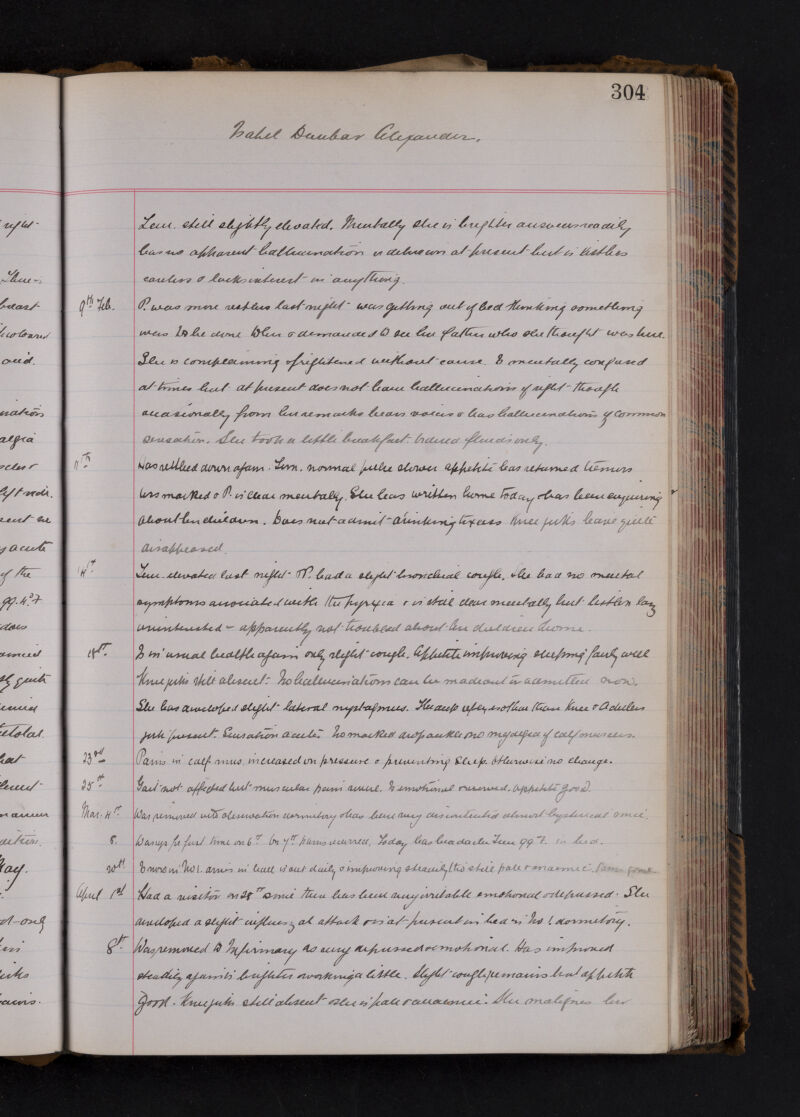 304
Isabel Dunbar Alexander.
Tem. still slightly elevated. Mentally she is brighter answers readily
has no apparent hallucination or delusion at present but is listless
careless & lacks interest in anything.
9th Feb. P. was more restless last night was getting out of bed thinking something
was to be done to her & demanded to see her father who she thought was here.
She is complaining frightened without cause. Is mentally confused
at times but at present does not have hallucinations of sight though
occasionally from her remarks hears voices & has hallucinations of common
sensation. She took a little breakfast. Ordered fluids only.
11th Has settled down again. Tem. normal pulse slower appetite has returned tremors
less marked & P. is clear mentally. She has written home today & has been enquiring
about her children. Does not admit drinking to excess Knee jerks have quite
disappeared.
14th Tem. elevated last night P. had a slight bronchial cough. She had no mental
symptoms associated with the pyrexia & is still clear mentally but listless lazy
uninterested - apparently not troubled about her children & home.
18th Is in usual health again only slight cough. Appetite improving sleeping fairly well
Knee jerks still absent. No hallucinations can be made out or admitted now.
She has developed slight lateral nystagmus. The deep reflexes other than knee &
jerk present. Sensation acute. No marked drop ankle no myalgia of calf muscles.
23rd Pains in calf mus. increased on pressure & preventing sleep. Otherwise no change.
25th Gait not affected but muscular pains severe. Is emotional reserved. Appetite good.
Mar. 4th Was removed into observation dormitory & has been very discontented almost hysterical since.
8. Was up for first time on 6th. On 7th pains recurred. Today has headache Tem 99.2. in bed.
20th Is now in No 1. dines in hall is out daily & improving steadily tho still pale & anaemic.
April 1st Had a visitor on 28th since then has been very irritable emotional & depressed. She
developed a slight influenzal attack & is at present in bed in No 1 dormitory.
8th Was removed to Infirmary as very depressed & emotional. Has improved
steadily again is brighter & working a little. Slight cough remains but appetite
good. Knee jerks still absent & she is pale & anaemic. She maligns her